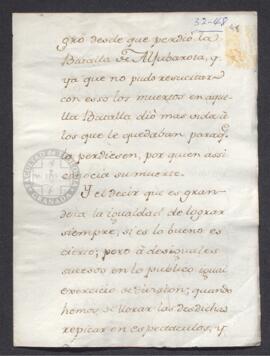 32-48
gró desde que perdió la
Batalla de Aljubarota, y
ya que no pudo resucitar
con esso los muertos en aque
lla Batalla dió mas vida á
los que le quedaban para q̃
la perdiesen, por quien assi
sucia su muerte.
Y el decir que es gran-
deza la igualdad de lograr
siempre, si es lo bueno es
cierto; pero á desiguales
sucesos en lo publico igual
exercicio de diversion; quando
hemos de llorar las desdichas
repicar en espectaculos, y